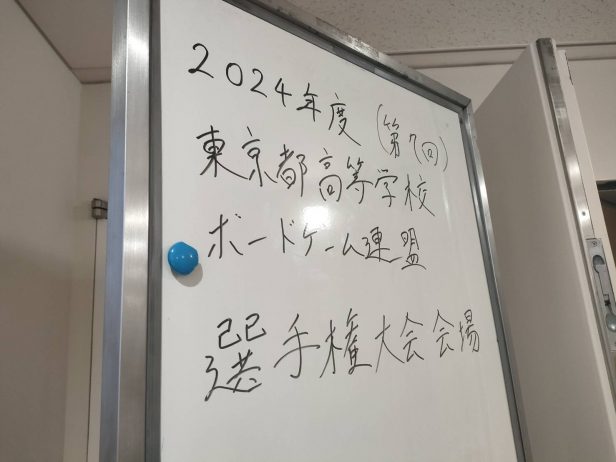 2024年度(第7回)
東京都高等学校
ボードゲーム連盟
選手権大会会場